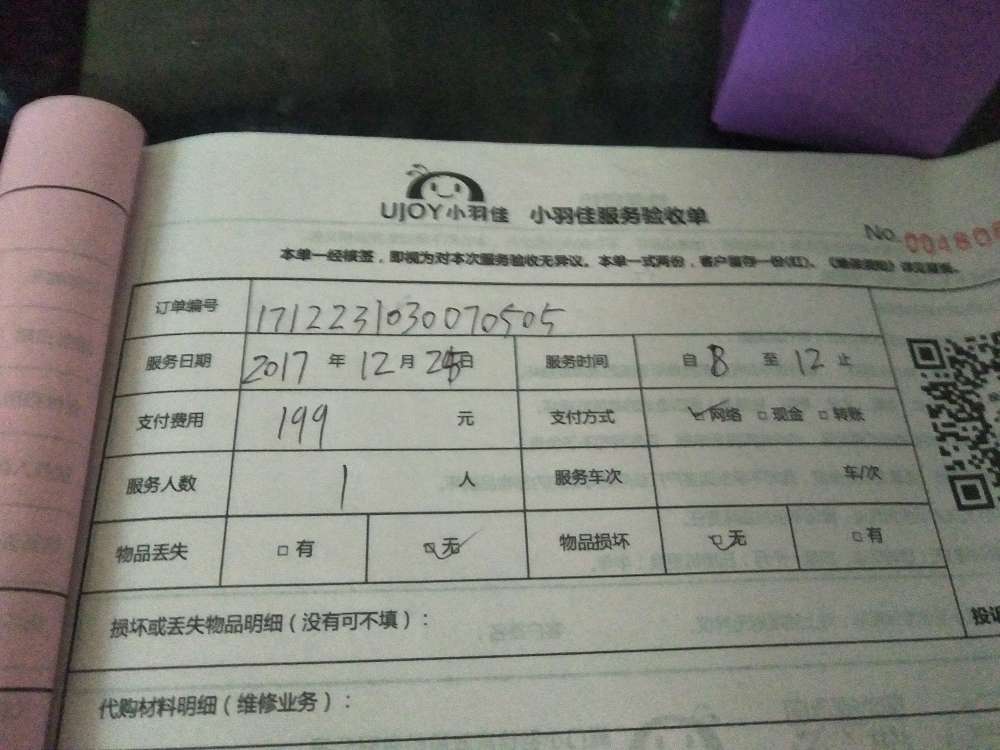 UJOY小羽佳 小羽佳服务验收单
No 00480
本单一经核签，即视为对本次服务验收无异议。本单一式两份，客户留存一份(红)、
订单编号 1712231030070505
服务日期 2017 年 12 月 日 服务时间 自 8 至 12 止
支付费用 199 元 支付方式 网络 □现金 □转账
服务人数 1 人 服务车次 车/次
物品丢失 □有 无 物品损坏 无 □有
损坏或丢失物品明细（没有可不填）：
投诉
代购材料明细（维修业务）：